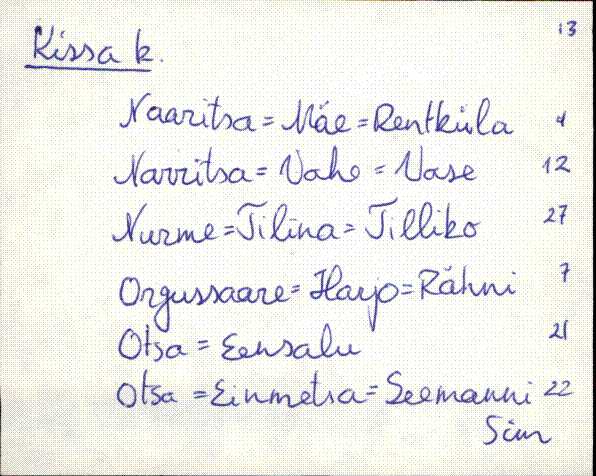 13
Kissa k.
Naaritsa = Mäe = Rentküla 4
Narritsa = Vahe = Vase 12
Nurme = Tilina = Tilliko 27
Orgussaare = Harjo = Rähni 7
Otsa = Eensalu 21
Otsa = Einmetsa = Seemanni 22